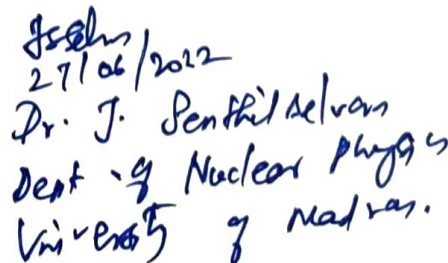 27/06/2022
Dr. J. Senthil Selvan
Dept. of Nuclear Physics
University of Madras.